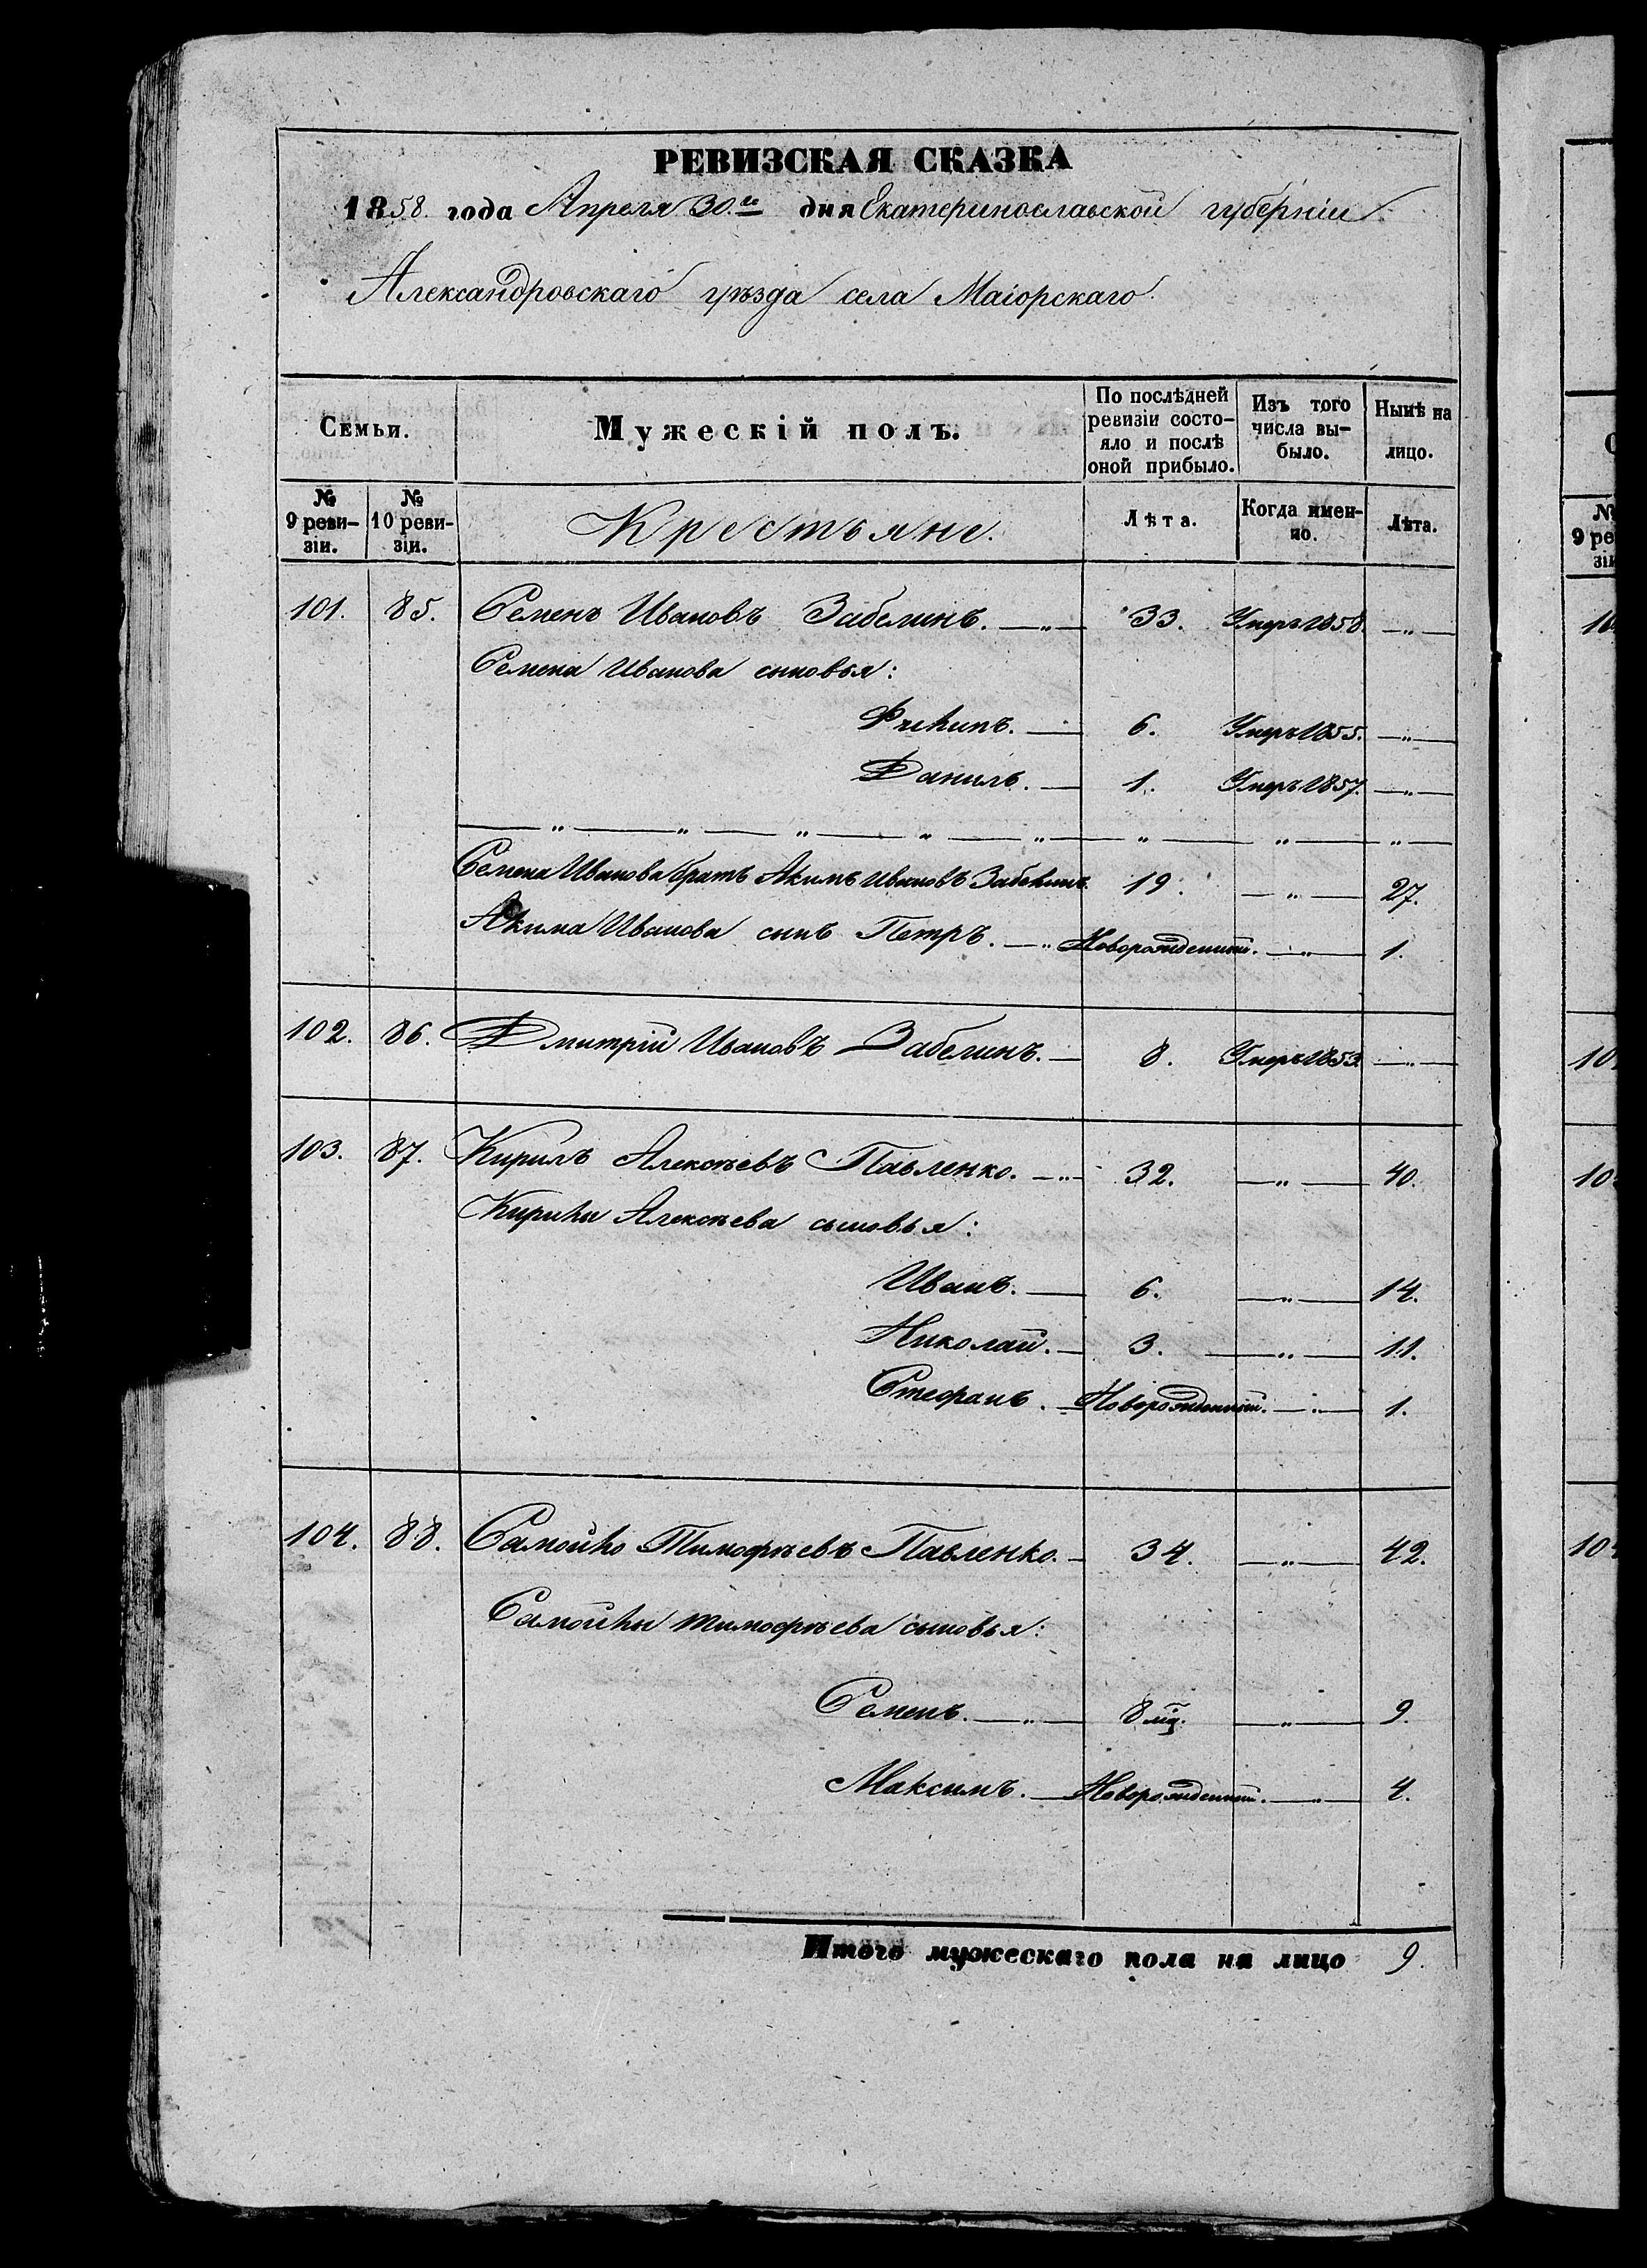 РЕВИЗСКАЯ СКАЗКА
1858. года Апреля 30.го дня Екатеринославской губерніи
Александровскаго уѣзда села Маіорскаго.
Семьи. Мужескій полъ. По послѣдней ревизіи состо- яло и послѣ оной прибыло. Изъ того числа вы- было. Нынѣ на лицо.
№ 9 реви- зіи. № 10 реви- зіи. Крестьяне. Лѣта. Когда имен- но. Лѣта.
101. 85. Семенъ Ивановъ Забелинъ. —„— 33. Умеръ 1858. —„—
Семена Иванова сыновья:
Филипъ. — 6. Умеръ 1855. —„—
Данилъ. — 1. Умеръ 1857. —„—
— „ — „ — „ — „ — „ — „ — „ — „ —
Семена Иванова братъ Акимъ Ивановъ Забелинъ. 19. —„— 27.
Акима Иванова сынъ Петръ. —„ Новорожденный. —„— 1.
102. 86. Дмитрій Ивановъ Забелинъ. — 8. Умеръ 1853 —„—
103. 87. Кирилъ Алексѣевъ Павленко. —„— 32. —„— 40.
Кирилы Алексѣева сыновья:
Иванъ. — 6. —„— 14.
Николай. — 3. —„— 11.
Стефанъ. — Новорожденный. —„— 1.
104. 88. Самойло Тимофѣевъ Павленко. — 34. —„— 42.
Самойлы тимофѣева сыновья:
Семенъ. —„— 8 мц. —„— 9.
Максимъ. — Новорожденный. —„— 4.
Итого мужескаго пола на лицо 9.
№
9 ре
зіи
10
10
10
10